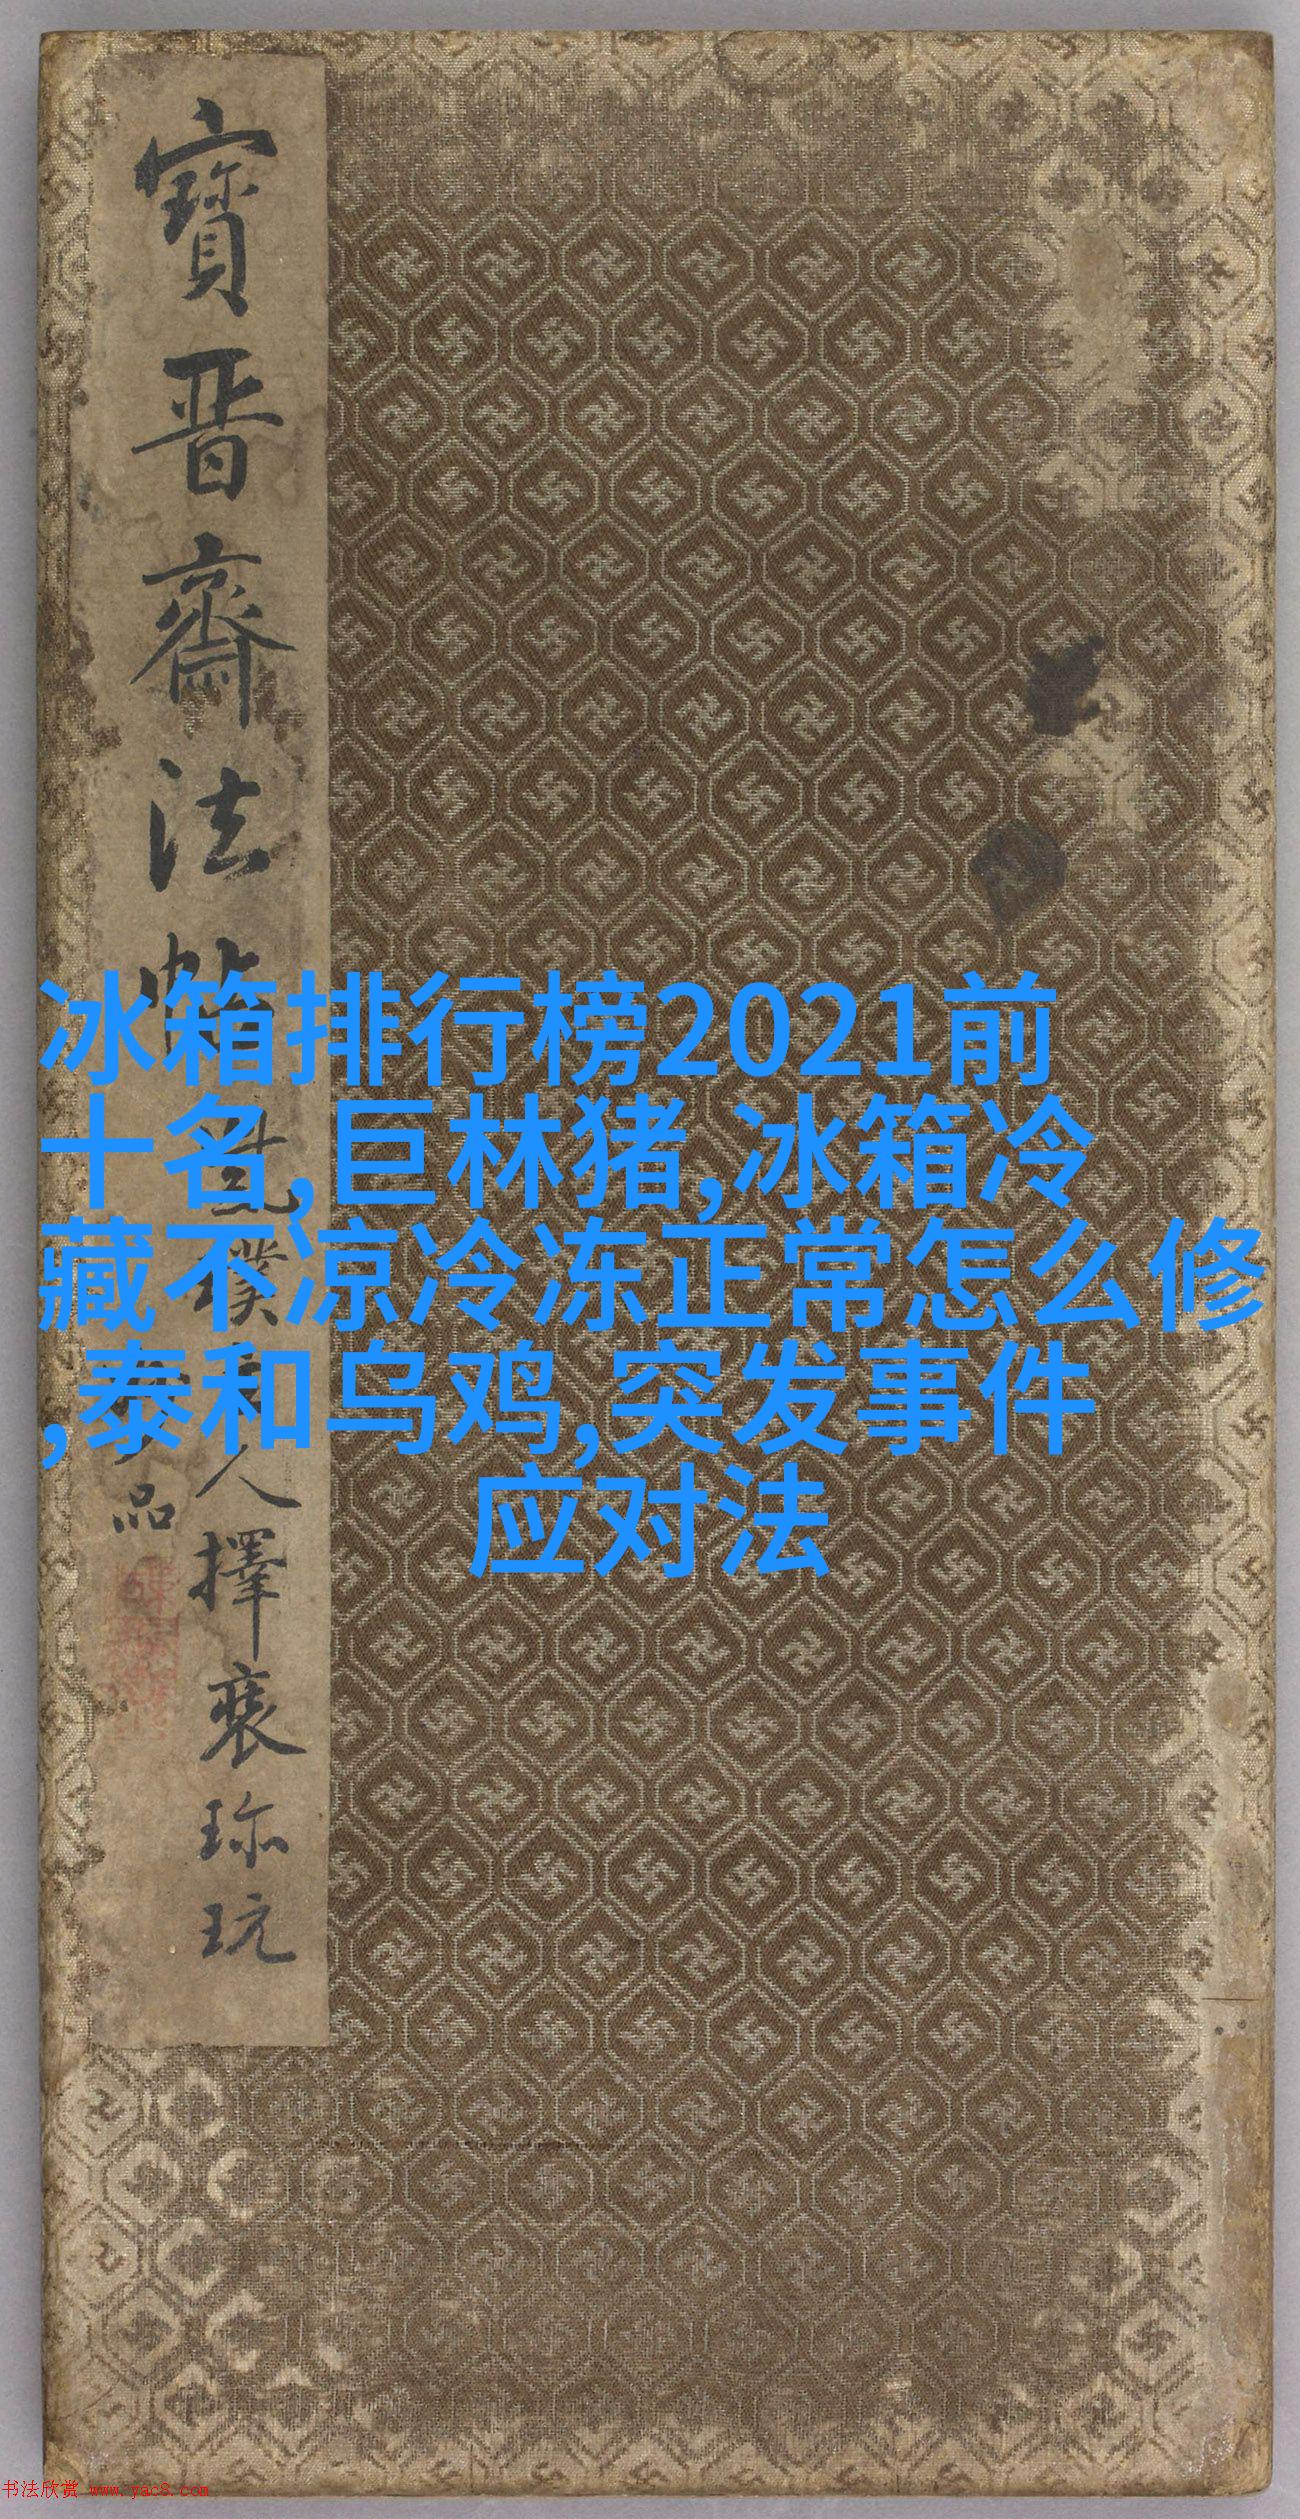 寶晉齋法帖
人擇裒珎玩
品
冰箱排行榜2021前
十名,巨林猪,冰箱冷
藏不凉冷冻正常怎么修
,泰和乌鸡,突发事件
应对法
书法欣赏 www.yac8.com